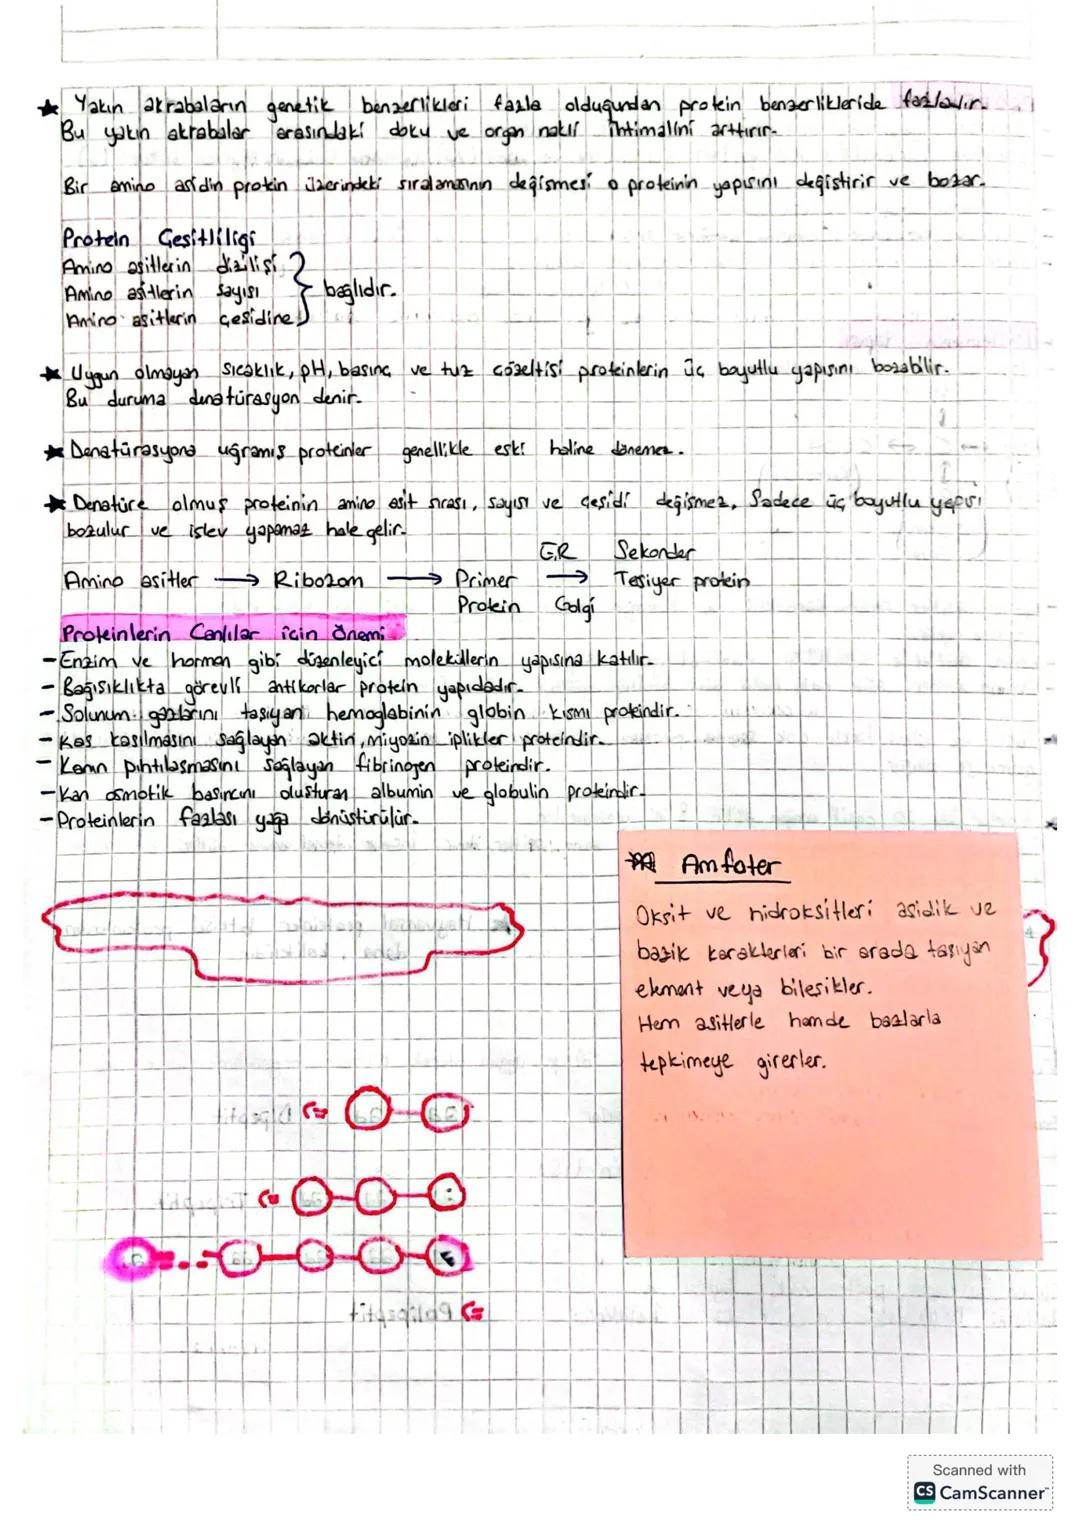 ★ Yakın akrabaların genetik benzerlikleri fazla olduğundan protein benzerlikleride fazladır.
Bu yakın akrabalar arasındaki doku ve organ nakli ihtimalini arttırır.
Bir amino asidin protein üzerindeki sıralamasının değişmesi o proteinin yapısını değiştirir ve bozar.
Protein Çeşitliliği
Amino asitlerin dizilişi
Amino asitlerin sayısı } bağlıdır.
Amino asitlerin çeşidine
★ Uygun olmayan sıcaklık, pH, basınç ve tuz çözeltisi proteinlerin üç boyutlu yapısını bozabilir.
Bu duruma denatürasyon denir.
★ Denatürasyona uğramış proteinler genellikle eski haline dönemez.
★ Denatüre olmuş proteinin amino asit sırası, sayısı ve çeşidi değişmez, Sadece üç boyutlu yapısı
bozulur ve işlev yapamaz hale gelir.
E.R Sekonder
Amino asitler → Ribozom → Primer → Tesiyer protein
Protein Golgi
Proteinlerin Canlılar için Önemi
- Enzim ve hormon gibi düzenleyici moleküllerin yapısına katılır.
- Bağışıklıkta görevli antikorlar protein yapıdadır.
- Solunum gazlarını taşıyan hemoglobinin globin kısmı proteindir.
- Kas kasılmasını sağlayan aktin, miyozin iplikler proteindir.
- Kanın pıhtılaşmasını sağlayan fibrinojen proteindir.
- Kan osmotik basıncını oluşturan albumin ve globulin proteindir.
- Proteinlerin fazlası yağa dönüştürülür.
Amfoter
Oksit ve hidroksitleri asidik ve
bazik karakterleri bir arada taşıyan
element veya bileşikler.
Hem asitlerle hemde bazlarla
tepkimeye girerler.
Scanned with
CS CamScanner